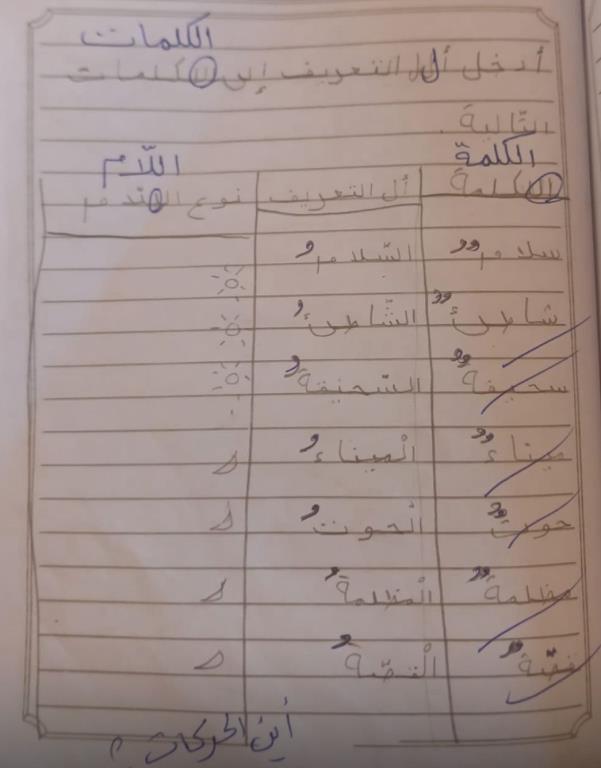 الكلمات
أدخل أل التعريف إلى الكلمات
التالية.
الكلمة اللّام
الكلمة أل التعريف نوع
سلامٌ السّلامُ
شاطئٌ الشّاطئُ
سحيقةٌ السّحيقةُ
ميناءٌ الْميناءُ
حوتٌ الْحوتُ
مظلمةٌ الْمظلمةُ
قصّةٌ الْقصّةُ
أين الحركات؟